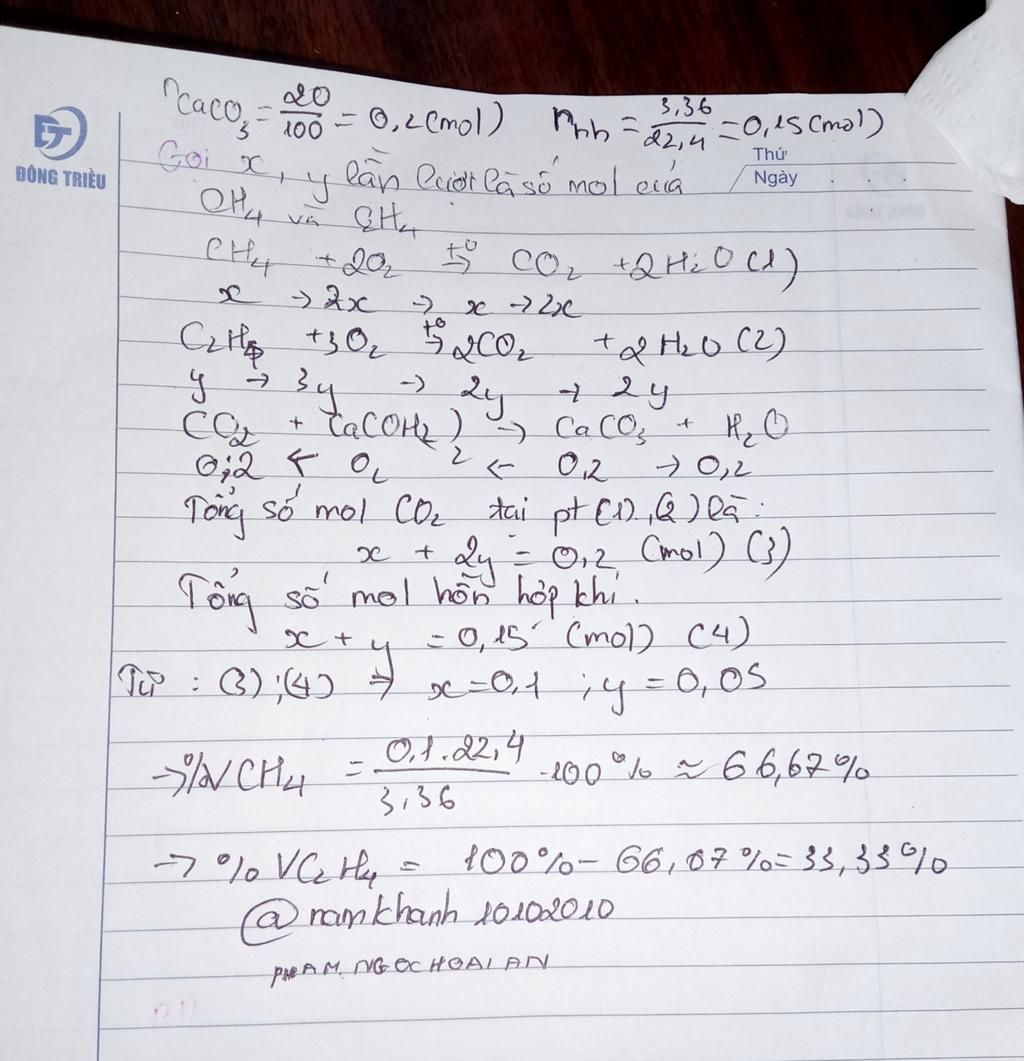 nCaCO3 = 20/100 = 0,2 (mol) nhh = 3,36/22,4 = 0,15 (mol)
ĐT
ĐÔNG TRIỀU
Thứ
Ngày
Gọi x, y lần lượt là số mol của
CH4 và C2H4
CH4 + 2O2 t°→ CO2 + 2H2O (1)
x → 2x → x → 2x
C2H4 + 3O2 t°→ 2CO2 + 2H2O (2)
y → 3y → 2y → 2y
CO2 + Ca(OH2)2 → CaCO3 + H2O
0,2 ← 0,2 ← 0,2 → 0,2
Tổng số mol CO2 tại pt (1), (2) là:
x + 2y = 0,2 (mol) (3)
Tổng số mol hỗn hợp khí.
x + y = 0,15 (mol) (4)
Từ : (3) ; (4) => x = 0,1 ; y = 0,05
→ %VCH4 = 0,1.22,4/3,36 .100% ≈ 66,67%
→ %VC2H4 = 100% - 66,67% = 33,33%
@namkhanh 10102010
PHAM NGOC HOAI AN